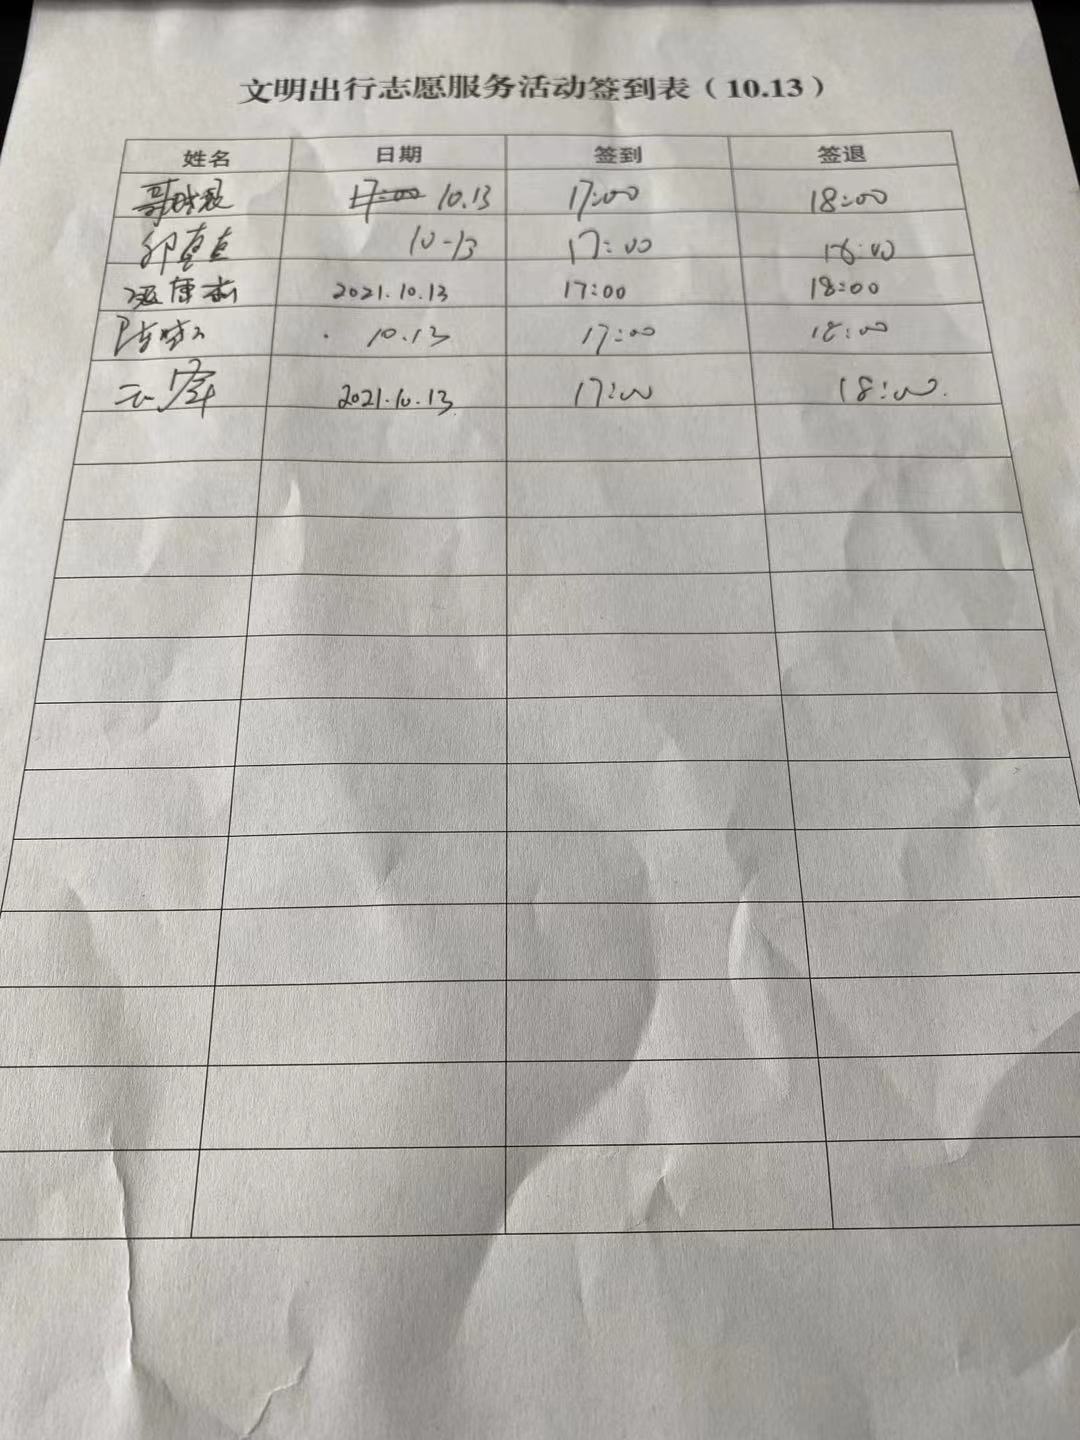 文明出行志愿服务活动签到表（10.13）
姓名 日期 签到 签退
17:00 10.13 17:00 18:00
10-13 17:00 18:00
2021.10.13 17:00 18:00
10.13 17:00 18:00
2021.10.13 17:00 18:00